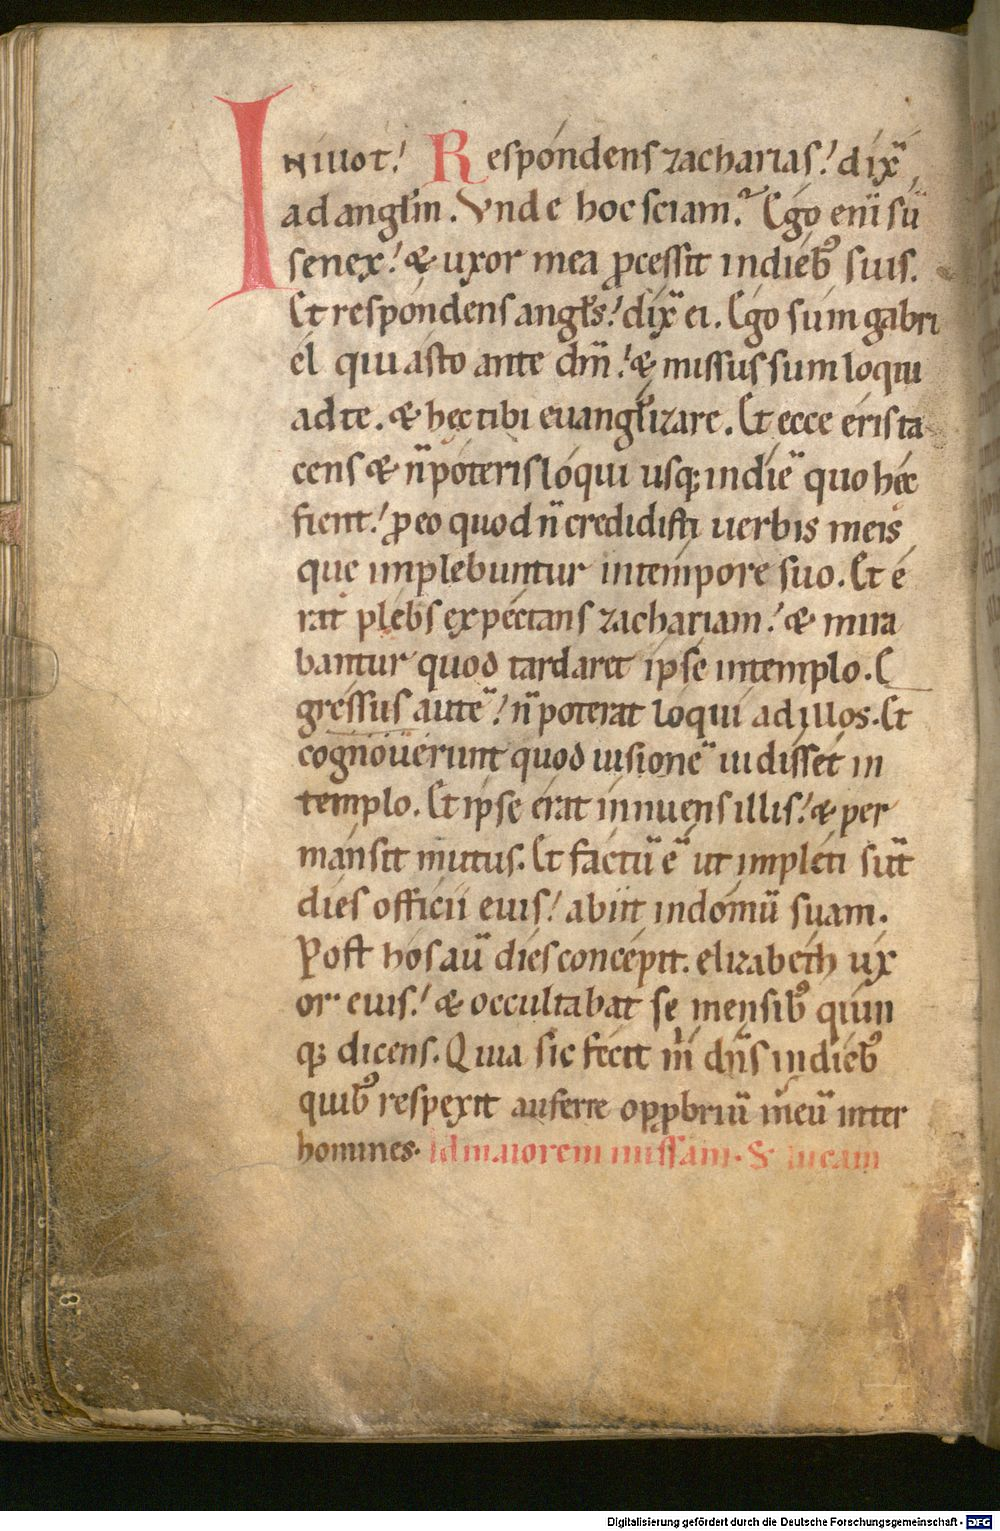 IN illo t̄. Respondens zacharias. dix̄
ad angl̄m. Vnde hoc sciam? Ego enī sū
senex. & uxor mea ꝓcessit in dieb; suis.
Et respondens angl̄s. dix̄ ei. Ego sum gabri
el qui asto ante dm̄. & missus sum loqui
ad te. & hęc tibi euangl̄izare. Et ecce eris ta
cens & n̄ poteris loqui usq; in diē quo hęc
fient. ꝓ eo quod n̄ credidisti uerbis meis
quę implebuntur in tempore suo. Et e
rat plebs expectans zachariam. & mira
bantur quod tardaret ipse in templo. E
gressus autē. n̄ poterat loqui ad illos. Et
cognouerunt quod uisionē uidisset in
templo. Et ipse erat innuens illis. & per
mansit mutus. Et factū ē ut impleti sūt
dies officii eius. abiit in domū suam.
Post hos aū dies concepit elizabeth ux
or eius. & occultabat se mensib; quin
q; dicens. Quia sic fecit m̄ dn̄s in dieb;
quib; respexit auferre opꝓbriū meū inter
homines. Ad maiorem missam. S̄ lucam
Digitalisierung gefördert durch die Deutsche Forschungsgemeinschaft - DFG